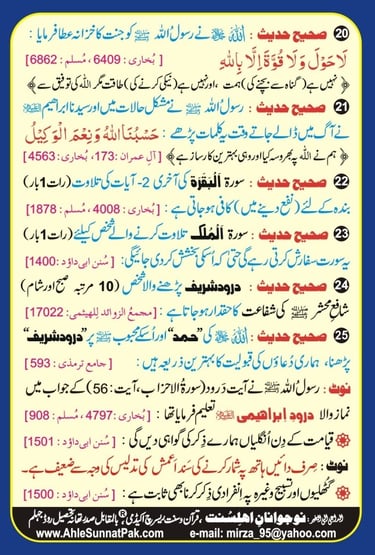 20 صحیح حدیث : اللہ ﷻ نے رسولُ اللہ ﷺ کو جنت کا خزانہ عطا فرمایا :
لَا حَوْلَ وَلَا قُوَّةَ اِلَّا بِاللّٰهِ [بُخاری : 6409 ، مُسلم : 6862]
﴿ نہیں ہے (گناہ سے بچنے کی) ہمت ، اور نہیں ہے (نیکی کرنے کی) طاقت مگر اللہ کی توفیق سے ﴾
21 صحیح حدیث : رسولُ اللہ ﷺ نے مشکل حالات میں اور سیدنا ابراھیم
نے آگ میں ڈالے جاتے وقت یہ کلمات پڑھے : حَسْبُنَا اللّٰهُ وَنِعْمَ الْوَكِيْلُ
﴿ ہم نے اللہ پہ بھروسہ کیا اور وہی بہترین کارساز ہے ﴾ [آلِ عمران : 173، بخاری : 4563]
22 صحیح حدیث : سورۃ اَلْبَقَرَة کی آخری 2- آیات کی تلاوت (رات 1 بار)
بندہ کے لئے (نفع دینے میں) کافی ہو جاتی ہے : [بُخاری : 4008 ، مُسلم : 1878]
23 صحیح حدیث : سورۃ اَلْمُلْک تلاوت کرنے والے شخص کیلئے (رات 1 بار)
یہ سورت سفارش کرتی رہے گی حتیٰ کہ اُسکی بخشش کر دی جائیگی : [سُنن ابی داؤد : 1400]
24 صحیح حدیث : درود شریف پڑھنے والا شخص (10 مرتبہ صبح اور شام)
شافعِ محشر ﷺ کی شفاعت کا حقدار ہو جاتا ہے : [مجمعُ الزوائد للھیثمی : 17022]
25 صحیح حدیث : اللہ ﷻ کی ”حمد“ اور اُسکے محبوب ﷺ پر ”درود شریف“
پڑھنا ، ہماری دُعاؤں کی قبولیت کا بہترین ذریعہ ہیں : [جامع ترمذی : 593]
نوٹ : رسولُ اللہ ﷺ نے آیتِ درود (سورۃ الاحزاب ، آیت : 56) کے جواب میں
نماز والا درود اِبراھیمی ﷺ تعلیم فرمایا تھا : [بُخاری : 4797 ، مُسلم : 908]
قیامت کے دِن اُنگلیاں ہمارے ذِکر کی گواہی دیں گی : [سُنن ابی داؤد : 1501]
نوٹ : صِرف دائیں ہاتھ پہ شُمار کرنے کی سَند اَعمش کی تدلیس کی وجہ سے ضعیف ہے۔
گُٹھلیوں اور تسبیح وغیرہ پہ اِنفرادی ذِکر کرنا بھی ثابت ہے : [سُنن ابی داؤد : 1500]
نوجوانانِ اھلسنت ، قرآن و سنت ریسرچ اکیڈمی
www.AhleSunnatPak.com e-mail: mirza_95@yahoo.com